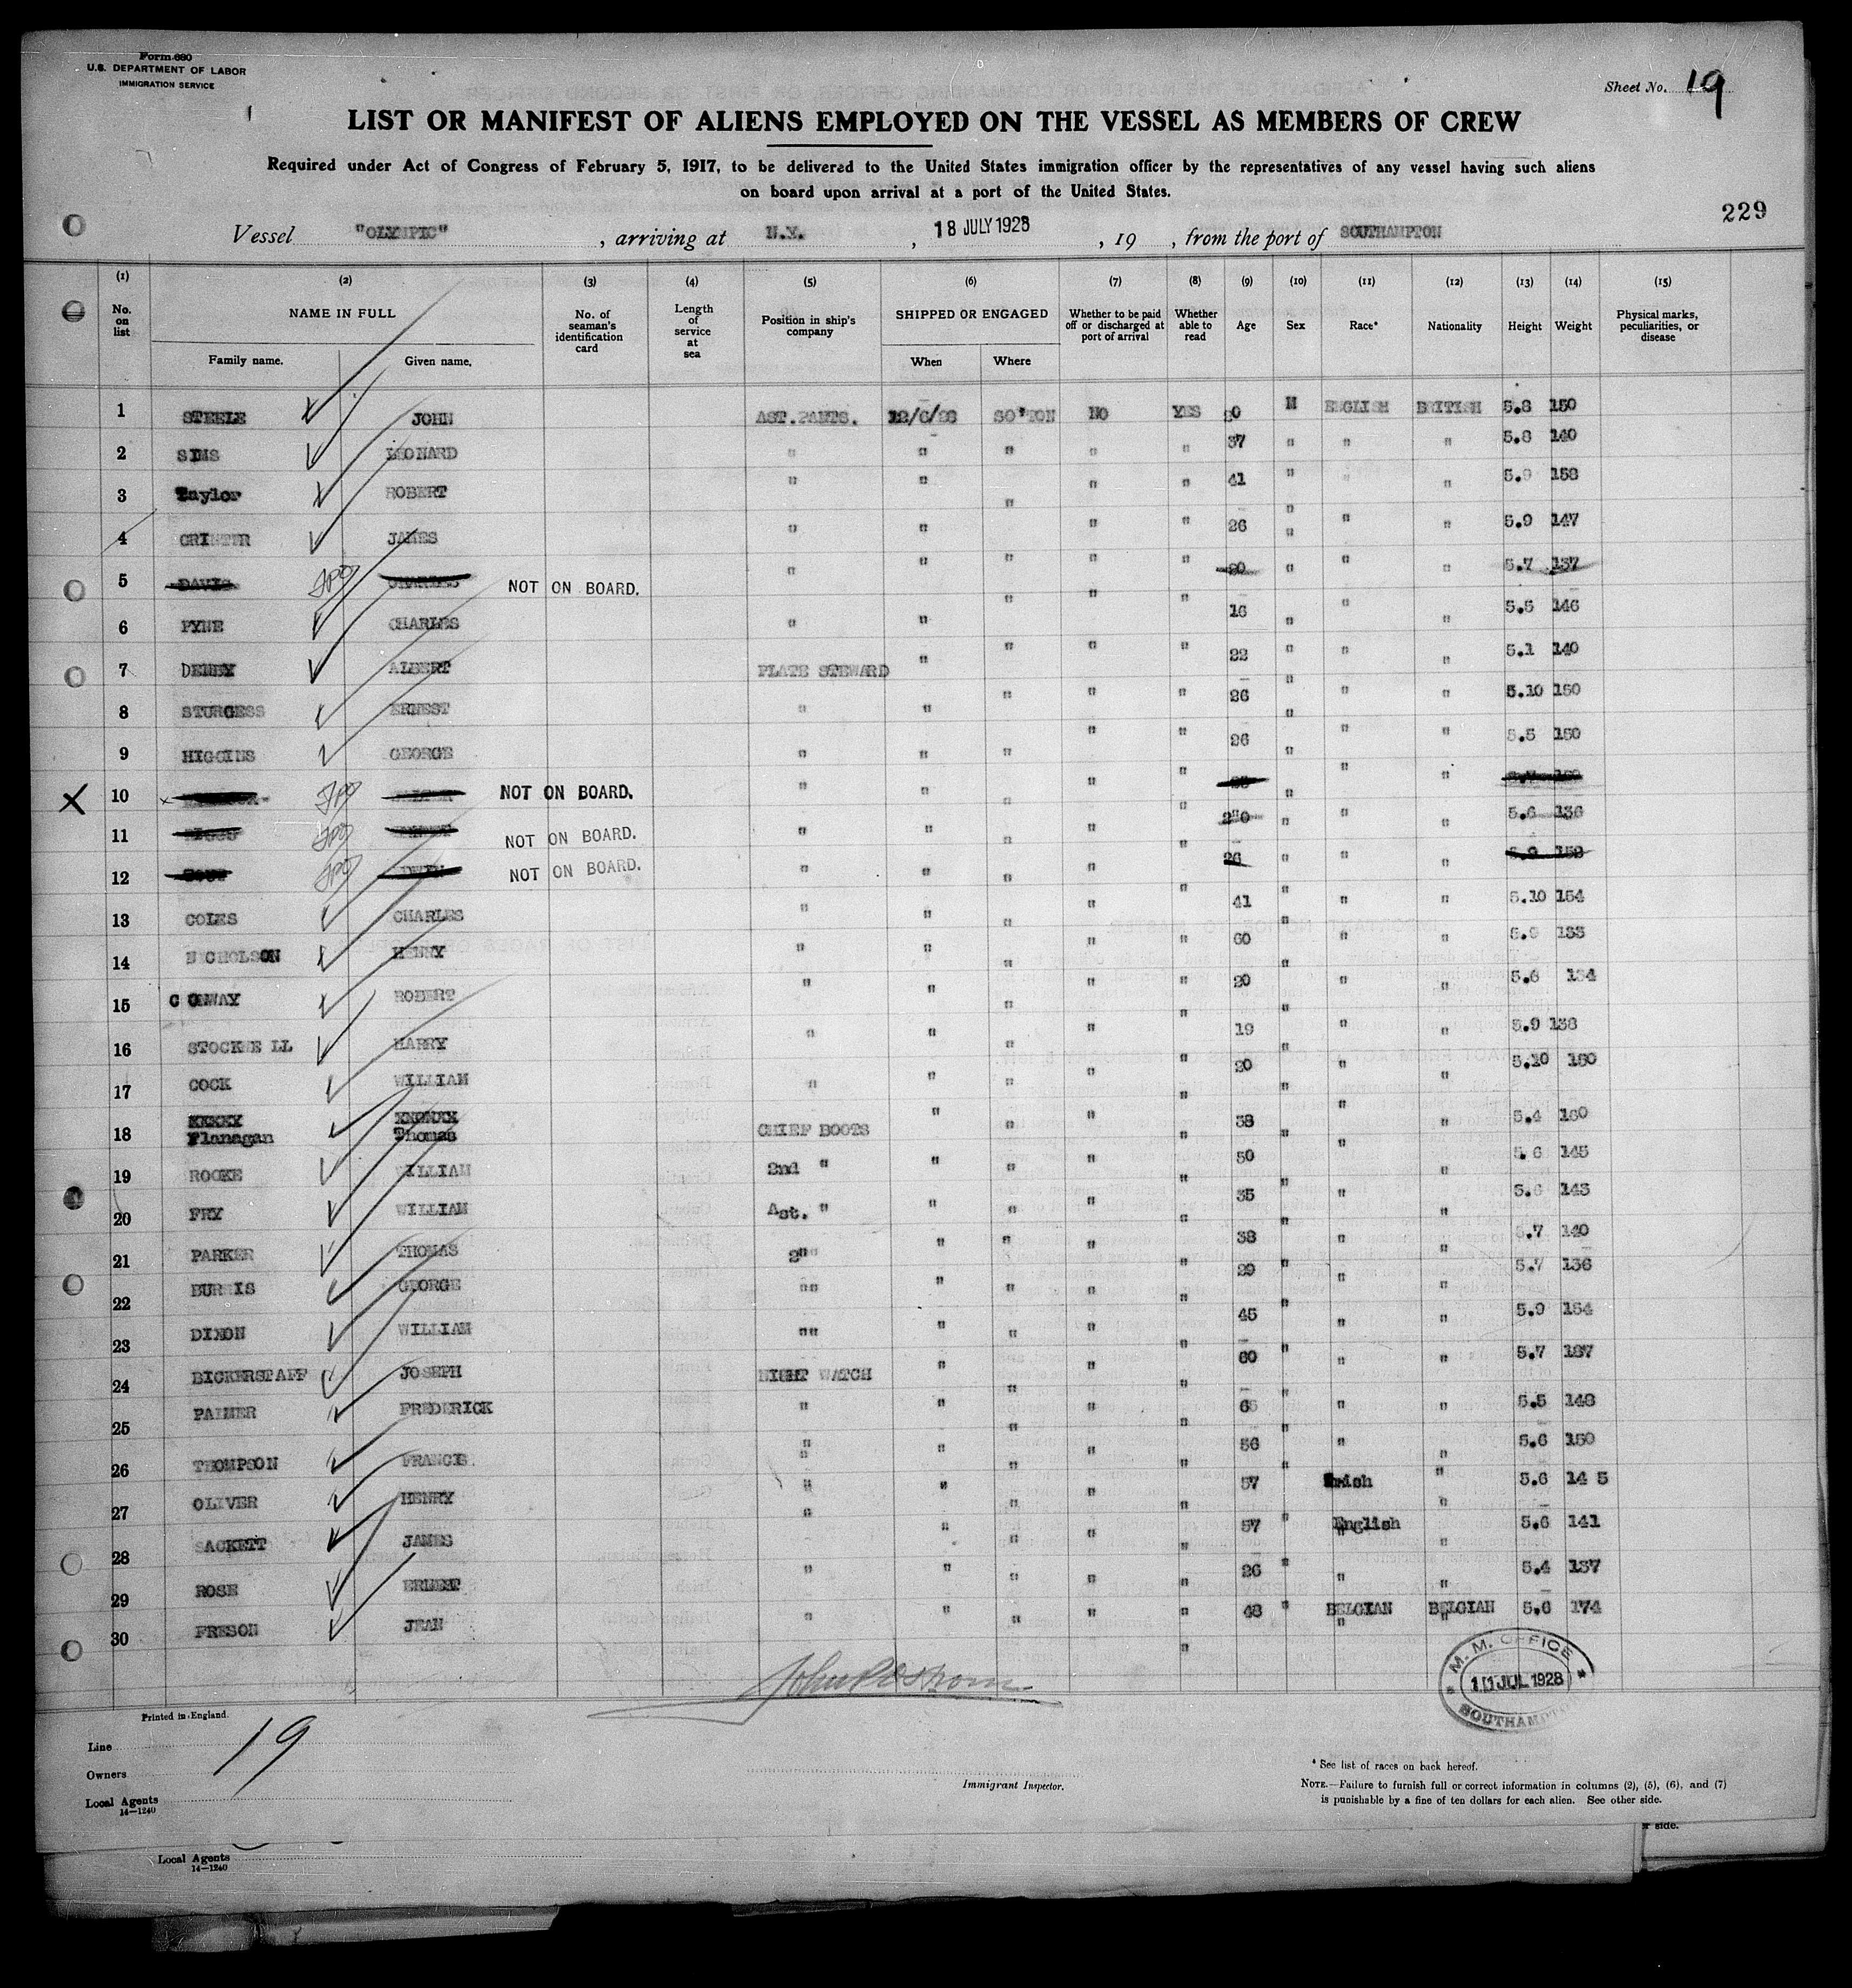 Form 680
U.S. DEPARTMENT OF LABOR
IMMIGRATION SERVICE
Sheet No. 19
LIST OR MANIFEST OF ALIENS EMPLOYED ON THE VESSEL AS MEMBERS OF CREW
Required under Act of Congress of February 5, 1917, to be delivered to the United States immigration officer by the representatives of any vessel having such aliens
on board upon arrival at a port of the United States.
229
Vessel "OLYMPIC", arriving at N.Y., 18 JULY 1928, 19 , from the port of SOUTHAMPTON
(1) (2) (3) (4) (5) (6) (7) (8) (9) (10) (11) (12) (13) (14) (15)
No. on list NAME IN FULL Family name. Given name. No. of seaman's identification card Length of service at sea Position in ship's company SHIPPED OR ENGAGED When Where Whether to be paid off or discharged at port of arrival Whether able to read Age Sex Race* Nationality Height Weight Physical marks, peculiarities, or disease
1 STEELE JOHN AST.PANTS. 12/6/28 SO'TON NO YES M ENGLISH BRITISH 5.8 150
2 SIMS LEONARD " " " " " 37 " " " 5.8 140
3 Taylor ROBERT " " " " " 41 " " " 5.9 158
4 JAMES " " " " 26 " " " 5.9 147
5 DAVIS CHARLES NOT ON BOARD. " " " " " " " 5.7 137
6 PYNE CHARLES " " " " " 16 " " " 5.5 146
7 DENBY ALBERT PLATE STEWARD " " " " 22 " " " 5.1 140
8 STURGESS ERNEST " " " " " 26 " " " 5.10 150
9 HIGGINS GEORGE " " " " " 26 " " 5.5 150
10 NOT ON BOARD. " " " " " " " "
11 NOT ON BOARD. " " " " " " " " 5.6 136
12 NOT ON BOARD. " " " " 26 " " " 5.9
13 COLES CHARLES " " " " " 41 " " " 5.10 154
14 NICHOLSON HENRY " " " " " 60 " " " 5.9 133
15 CONWAY ROBERT " " " " " 20 " " " 5.6 134
16 STOCKWELL HARRY " " " " " 19 " " " 5.9 138
17 COCK WILLIAM " " " " " 20 " " " 5.10 150
18 Flanagan Thomas CHIEF BOOTS " " " " 38 " " 5.4 160
19 ROOKE WILLIAM 2nd " " " " " 50 " " " 5.6 145
20 FRY WILLIAM Ast. " " " " " 35 " " " 5.6 143
21 PARKER THOMAS 2"" " " " " 38 " " 5.7 140
22 GEORGE "" " " " 29 " " " 5.7 136
23 DIXON WILLIAM "" " " " " 45 " " " 5.9 164
24 BICKERSTAFF JOSEPH NIGHT WATCH " " " " 60 " " " 5.7 187
25 PALMER FREDERICK " " " " " " " " 5.5 148
26 THOMPSON FRANCIS. " " " " " 56 " " " 5.6 150
27 OLIVER HENRY " " " " " 57 Irish " 5.6 145
28 SACKETT JAMES " " " " 57 " English " 5.6 141
29 ROSE ERNEST " " " " " 26 " " " 5.4 137
30 FRESON JEAN " " " " " 48 " BELGIAN BELGIAN 5.6 174
M. M. OFFICE
JUL 1928
SOUTHAMPTON
Printed in England.
Line
19
Owners
Local Agents
14—1240
Immigrant Inspector.
* See list of races on back hereof.
NOTE.—Failure to furnish full or correct information in columns (2), (5), (6), and (7)
is punishable by a fine of ten dollars for each alien. See other side.
side.
Local Agents
14—1240